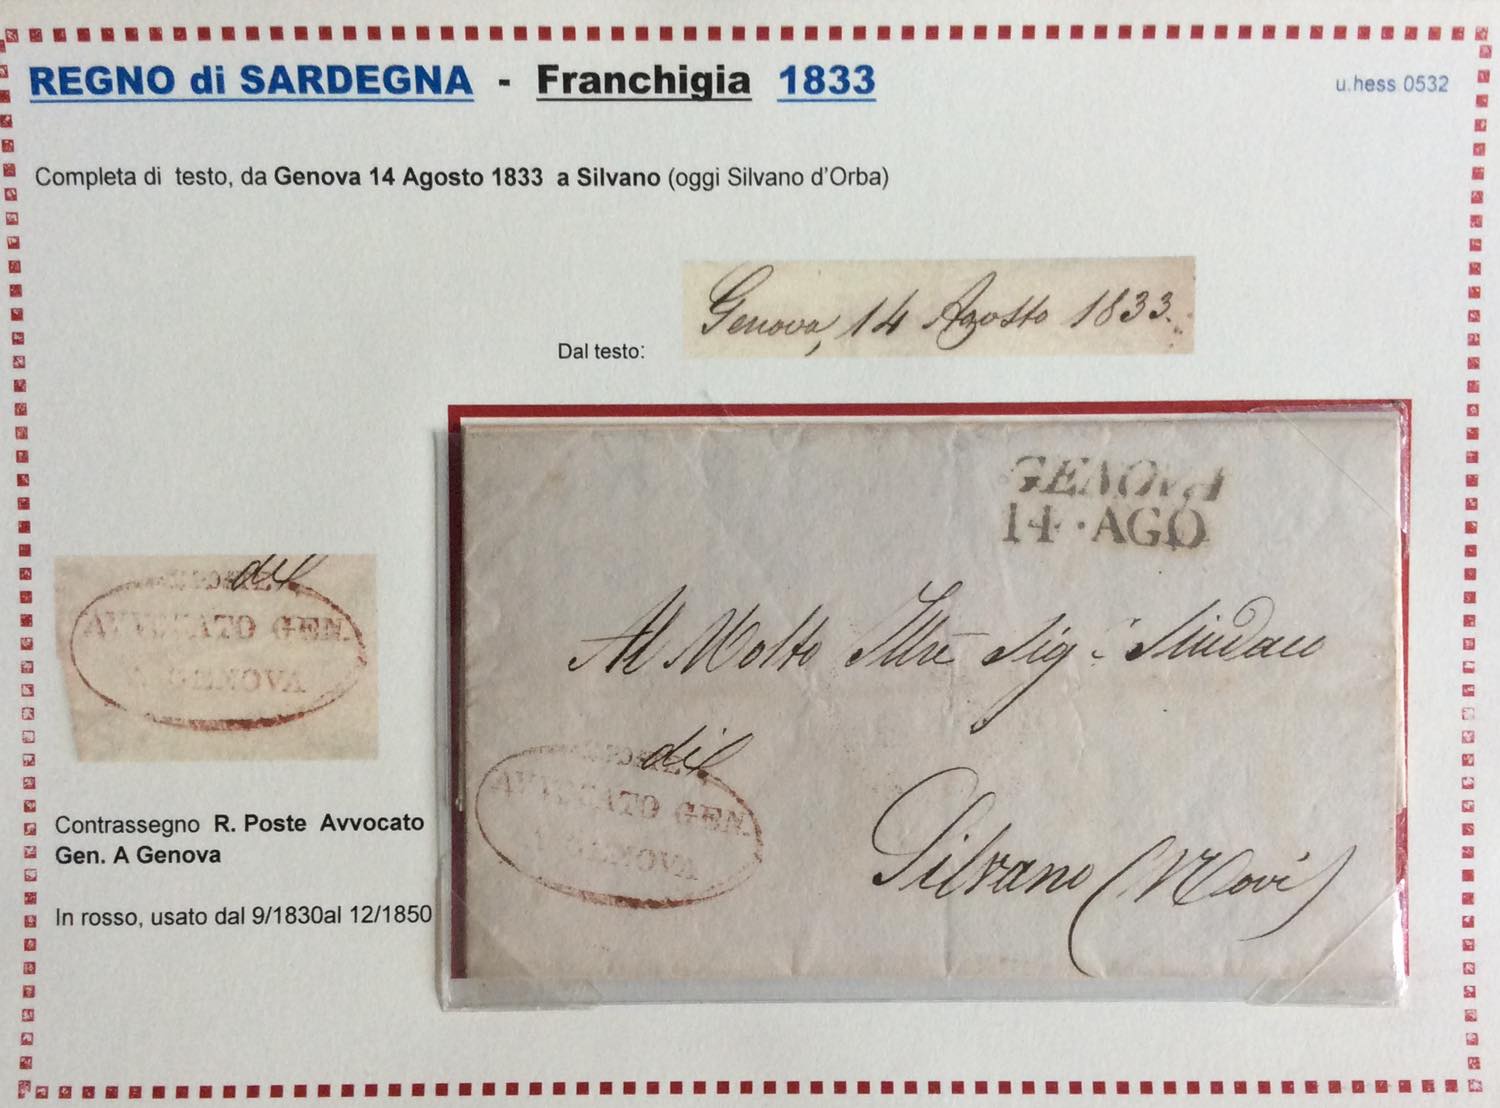 REGNO di SARDEGNA - Franchigia 1833
u.hess 0532
Completa di testo, da Genova 14 Agosto 1833 a Silvano (oggi Silvano d'Orba)
Dal testo:
Genova, 14 Agosto 1833.
del
AVVOCATO GEN.
A GENOVA
Contrassegno R. Poste Avvocato
Gen. A Genova
In rosso, usato dal 9/1830al 12/1850
GENOVA
14·AGO
Al Molto Illre Sigr Sindaco
del
AVVOCATO GEN.
A GENOVA
Silvano (Novi)